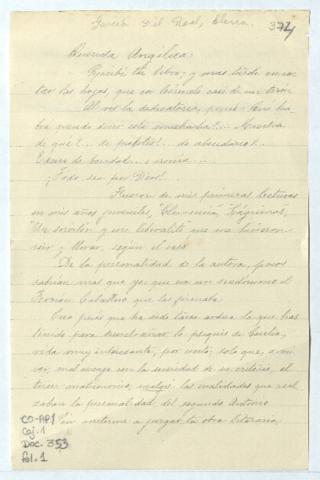 García del Real, Elena. 374
Querida Angélica:
Recibí tu libro, y mas tarde en cor-
tar las hojas, que en leérmelo casi de un tirón
Al ver la dedicatoria, pensé: ¿Qué ha-
brá querido decir esta muchacha?... Maestra
de qué?... de
Exceso de bondad... ó ironía...
¡Todo sea por Dios!
Fueron de mis primeras lecturas
en mis años juveniles, "Clemencia", "Lágrimas",
"Un servilón y un liberalito" que me hicieron
reír y llorar, según el caso.
De la personalidad de la autora, pocos
sabrían mas que yo: que era un seudónimo el
Fernán Caballero que las firmaba.
Creo pues que ha sido tarea ardua la que has
tenido para desentrañar la psiquis de Cecilia,
vida muy interesante, por cierto; solo que, a mi
ver, mal encaja con la seriedad de su criterio, el
tercer matrimonio, malgré las maldades que real
zaban la personalidad del segundo Antonio.
Sin meterme a juzgar la obra literaria
CO-AP/
Caj. 1
Doc. 353
fol. 1